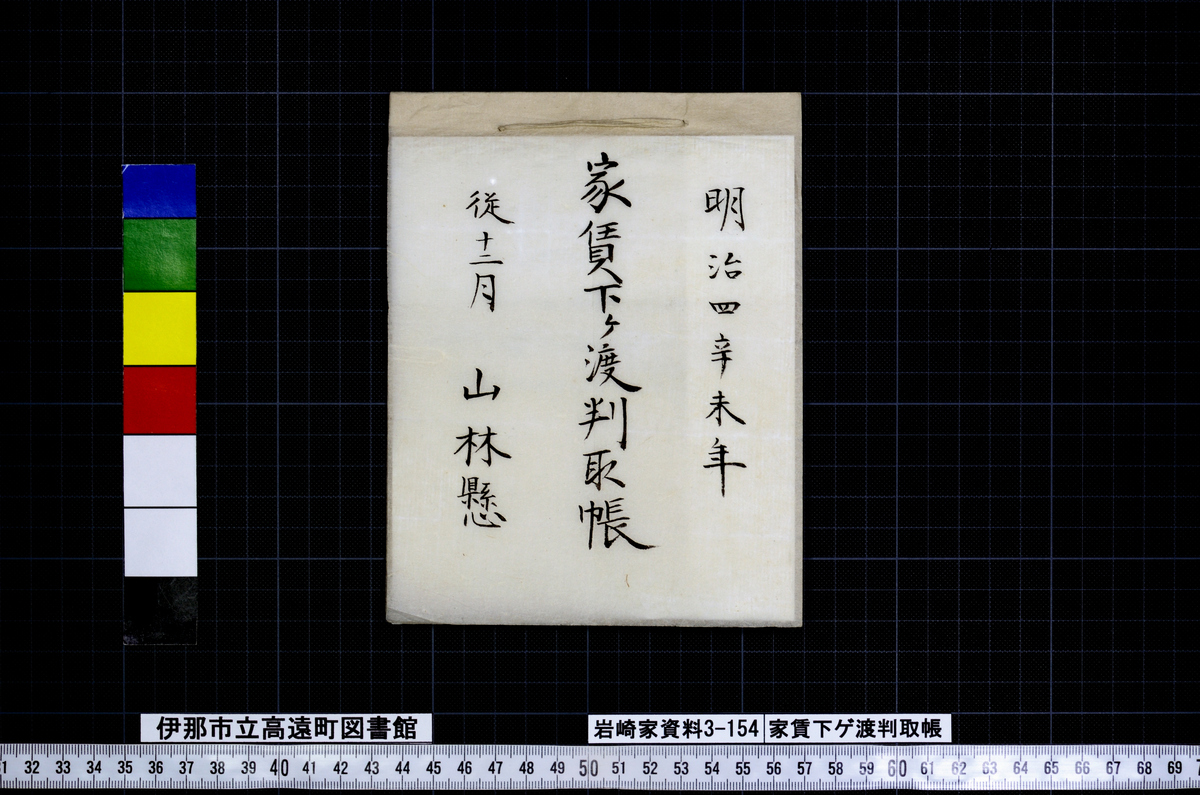 明治四辛未年
家賃下ヶ渡判取帳
従十二月　山林懸
伊那市立高遠町図書館
岩崎家資料3-154 家賃下ゲ渡判取帳
1 32 33 34 35 36 37 38 39 40 41 42 43 44 45 46 47 48 49 50 51 52 53 54 55 56 57 58 59 60 61 62 63 64 65 66 67 68 69 7